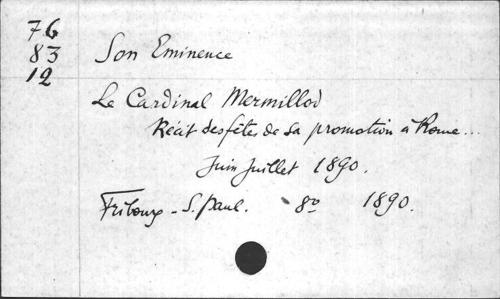 76
83
12
Son Eminence
Le Cardinal Mermillod
Récit des fêtes de sa promotion à Rome...
Juin Juillet 1890.
Fribourg - S. Paul. 8º 1890.